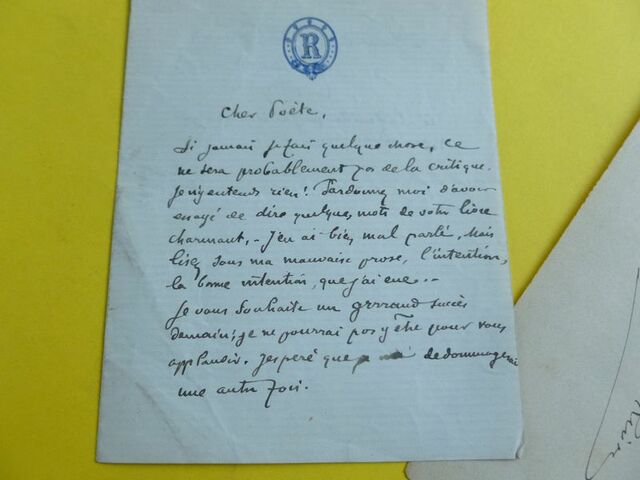 R
Cher Poète,
Si jamais je fais quelque chose, ce
ne sera probablement pas de la critique.
Je n'y entends rien! Pardonnez moi d'avoir
essayé de dire quelques mots de votre livre
charmant, - J'en ai bien mal parlé, Mais
lisez sous ma mauvaise prose, l'intention,
la bonne intention, que j'ai eue...
Je vous souhaite un grrrand succès
demain; je ne pourrai pas y être pour vous
applaudir. J'espère que de dommagerai
une autre fois.